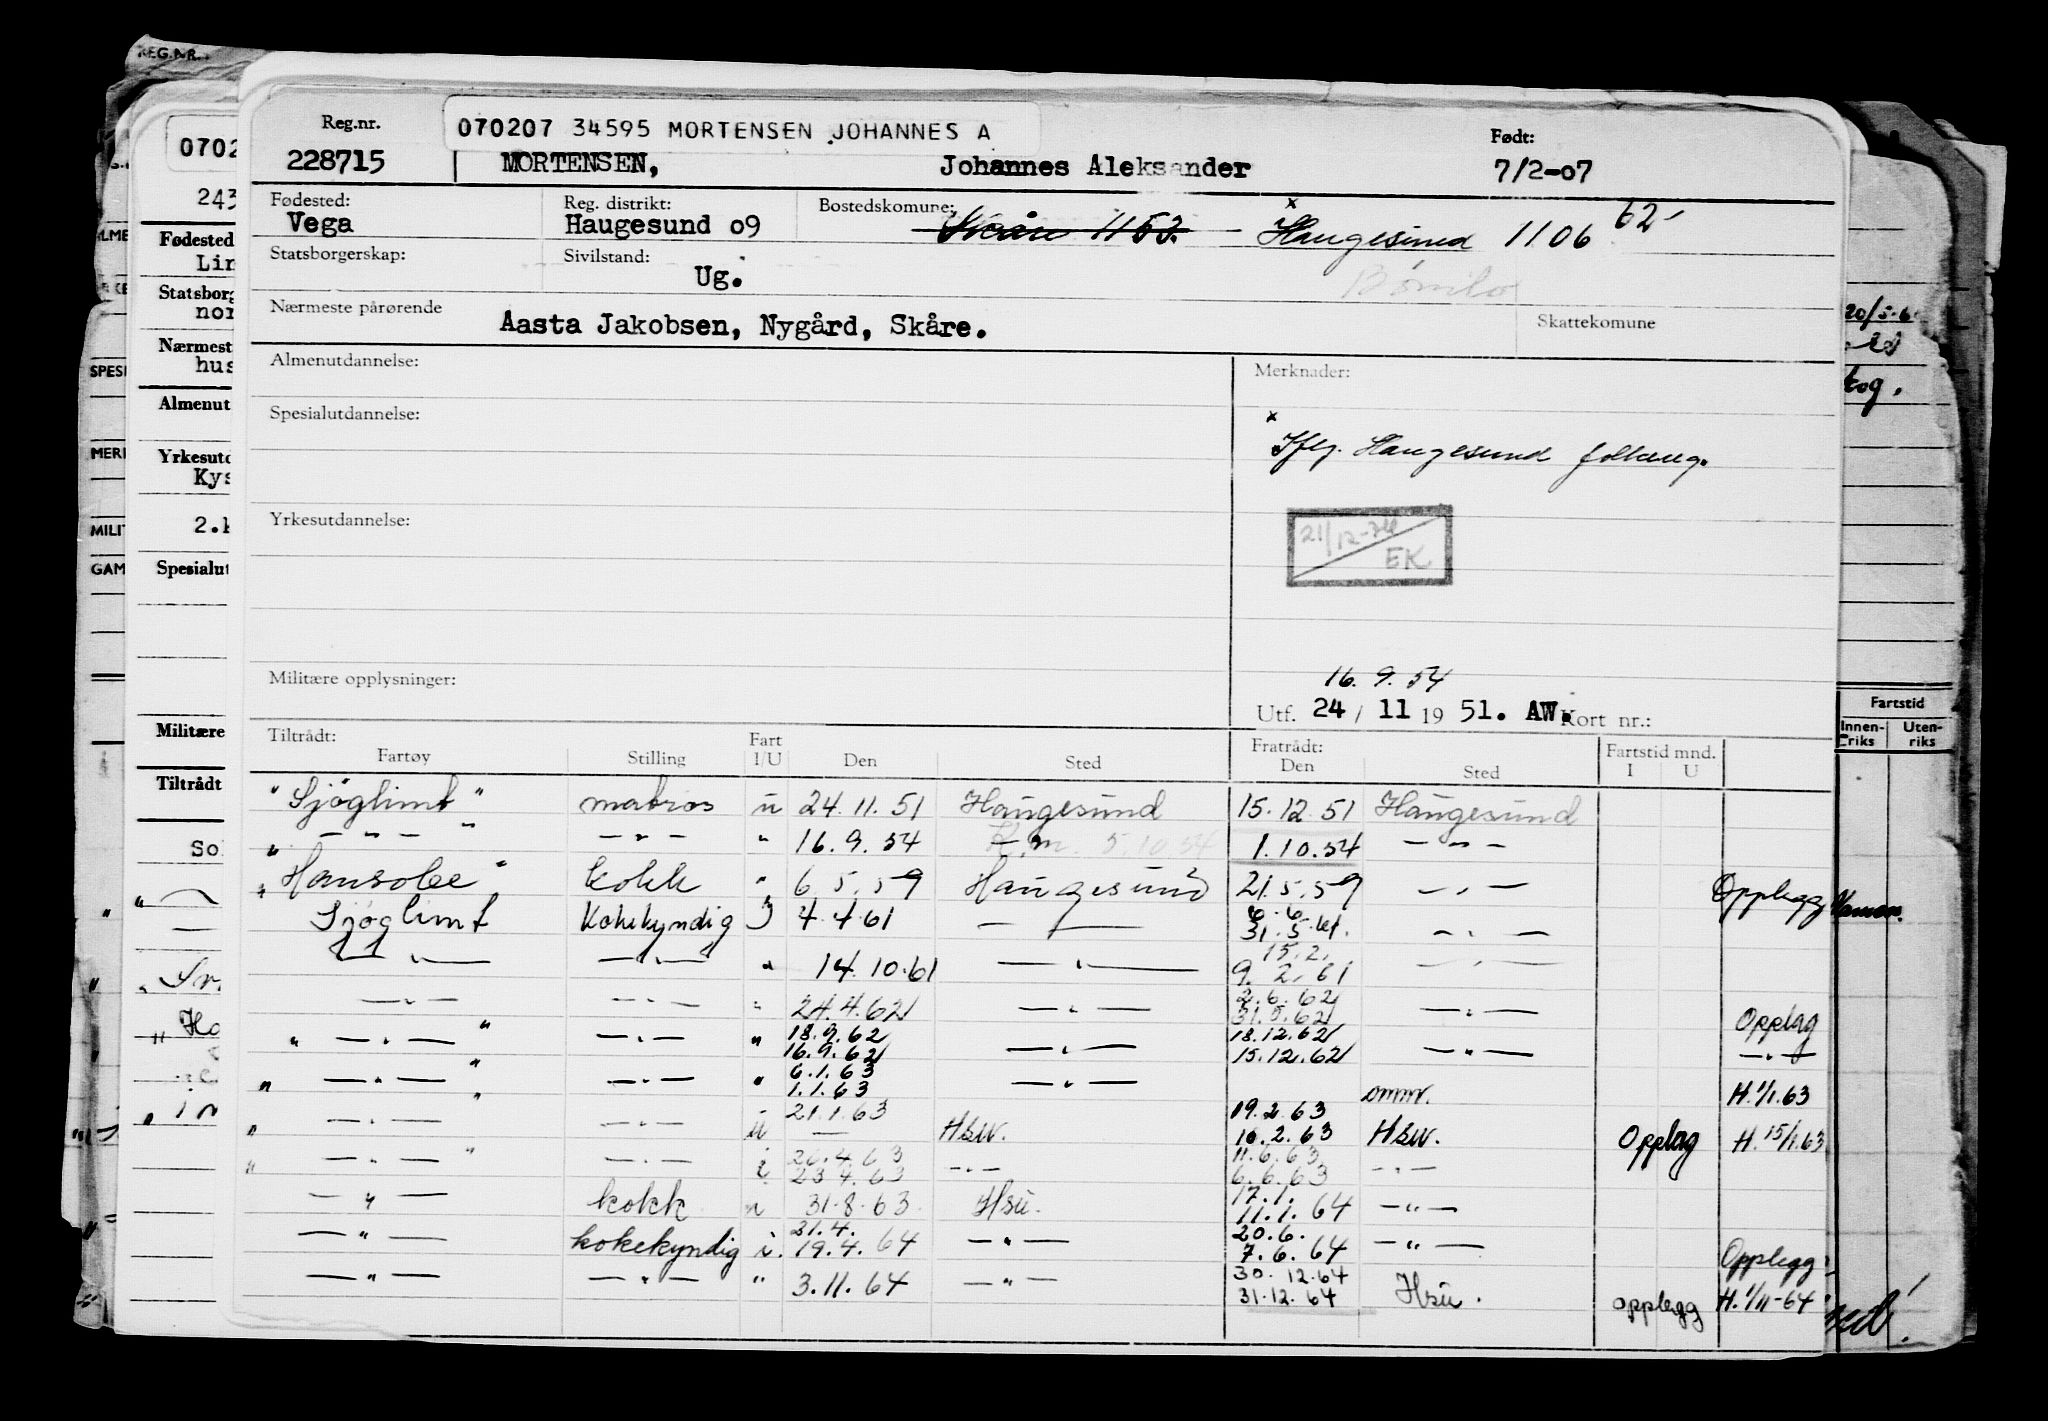 REG.NR.
Reg.nr. 070207 34595 MORTENSEN JOHANNES A Født:
228715 MORTENSEN, Johannes Aleksander 7/2-07
Fødested: Reg. distrikt: Bostedskomune:
Vega Haugesund 09 Skåre 1153. x Haugesund 1106 62-
Statsborgerskap: Sivilstand:
Ug. Bømlo
Nærmeste pårørende Skattekomune
Aasta Jakobsen, Nygård, Skåre.
Almenutdannelse: Merknader:
Spesialutdannelse: x
Iflg. Haugesund folkereg.
Yrkesutdannelse: 21/12-74
EK
Militære opplysninger: 16. 9. 54
Utf. 24 / 11 19 51. AW. Kort nr.:
Tiltrådt: Fart Fratrådt: Fartstid mnd.
Fartøy Stilling I/U Den Sted Den Sted I U
"Sjöglimt" matros u 24.11.51 Haugesund 15.12.51 Haugesund
" — " — " — " — " 16.9.54 K.m. 5.10.54 1.10.54 — " —
"Hansolee" kokk " 6.5.59 Haugesund 21.5.59 — " — Opplegg
Sjöglimt Kokekyndig 4.4.61 — " — 6.6. 31.5.61. — " —
— " — — " — " 14.10.61 — " — 15.2. 9.2.61 — " —
— " — — " — " 24.4.62 — " — 2.6.62 31.5.62 — " — Opplag
" — " — " — " — " 18.9.62 16.9.62 — " — 18.12.62 15.12.62 — " — — " —
" — " — " — " — " 6.1.63 1.1.63 — " — ommr. H. 1/1.63
" — " — " — " — ü 21.1.63 — Hsw. 19.2.63 16.2.63 Hsw. Opplag H. 15/1.63
" — " — " — " — i 26.4.63 23.4.63 — " — 11.6.63 6.6.63 — " —
— " — kokk u 31.8.63. Hsu. 17.1. 11.1.64 — " —
— " — kokekyndig i. 21.4. 19.4.64 — " — 20.6. 7.6.64 — " — Opplegg
— " — — " — " 3.11.64 — " — 30.12.64 31.12.64 Hsu. opplegg H. 1/11-64
0702
243
Fødested
Lin
Statsborg
nor
Nærmest
hus
Almenut
Yrkesutd
Kys
Spesialut
Militære
Tiltrådt
So
SPESI
MERI
MILIT
GAM
20/5-6
Fartstid
Innen-riks Uten-riks